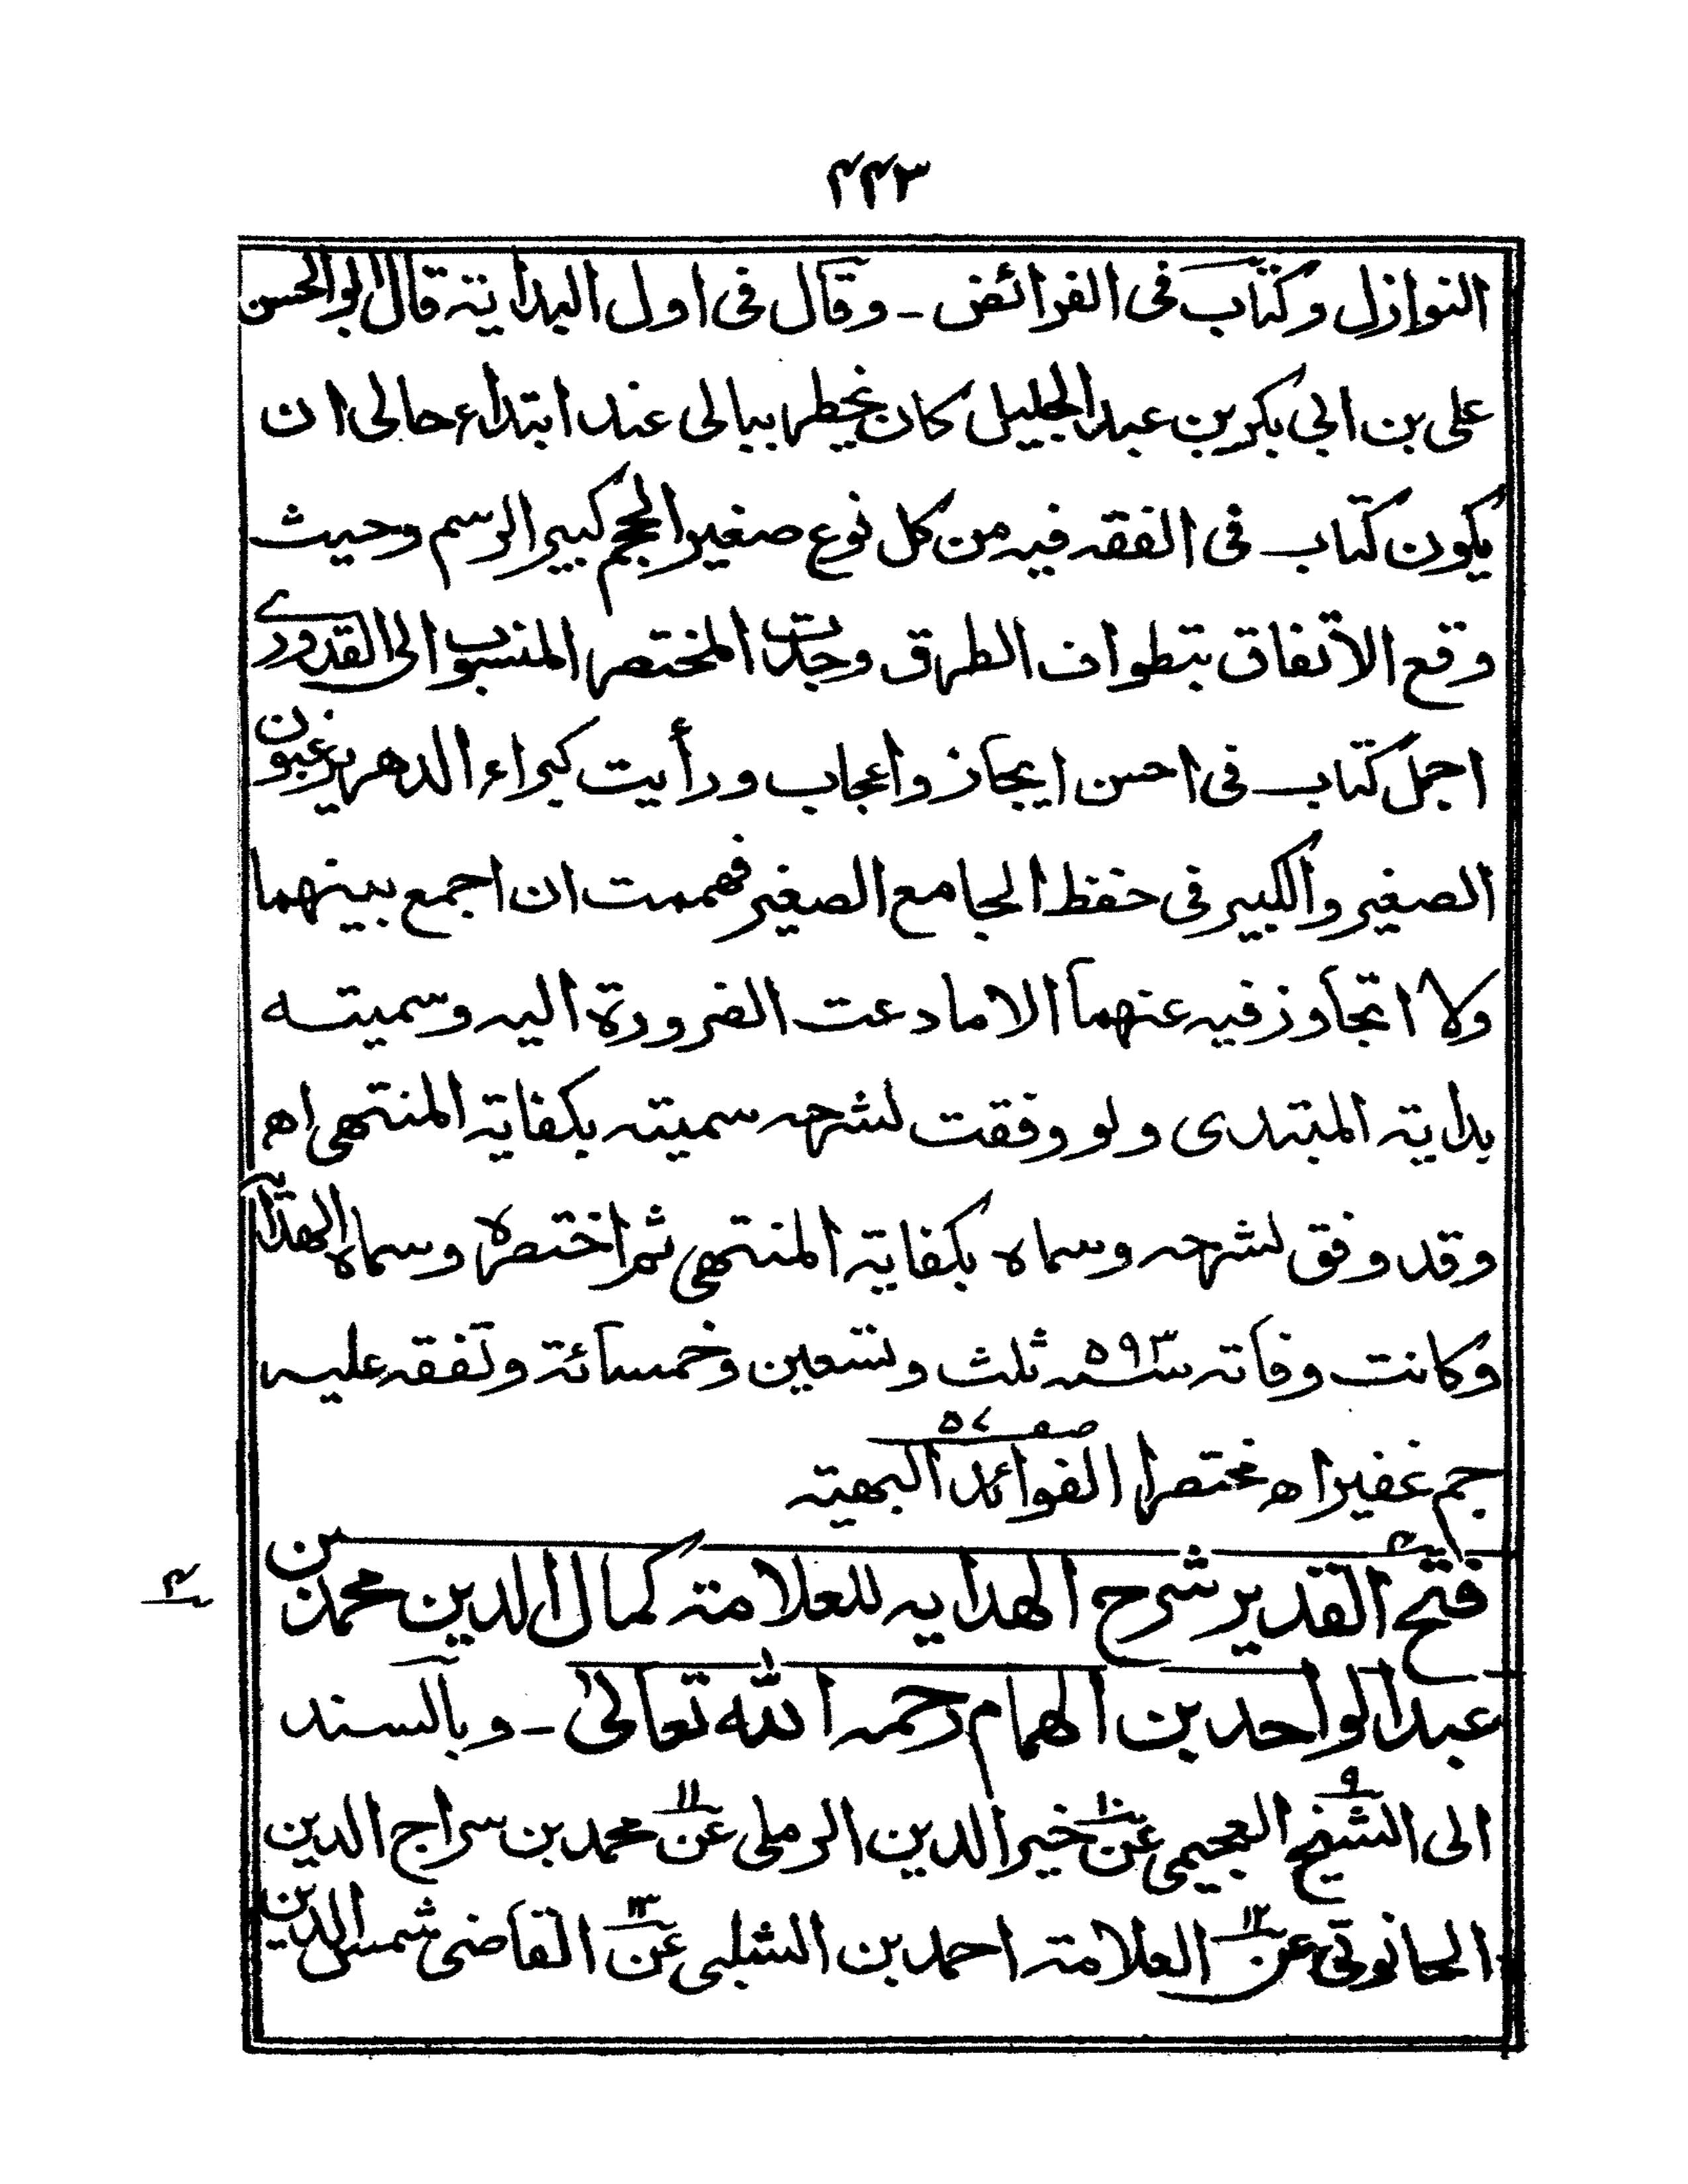 ۴۴۳
النوازل وكتاب فى الفرائض ـ وقال فى اول البداية قال ابوالحسن
على بن ابى بكر بن عبدالجليل كان يخطر ببالى عند ابتداء حالى ان
يكون كتاب فى الفقه فيه من كل نوع صغير الحجم كبير الرسم وحيث
وقع الاتفاق بتطواف الطرق وجدت المختصر المنسوب الى القدورى
اجمل كتاب فى احسن ايجاز واعجاب ورأيت كبراء الدهر يرغبون
الصغير والكبير فى حفظ الجامع الصغير فهممت ان اجمع بينهما
ولا اتجاوز فيه عنهما الا ما دعت الضرورة اليه وسميته
بداية المبتدى ولو وفقت لشرحه سميته بكفاية المنتهى اھ
وقد وفق لشرحه وسماه بكفاية المنتهى ثم اختصره وسماه الهداية
وكانت وفاته سنه ۵۹۳ ثلث وتسعين وخمسمائة وتفقه عليه
جم غفير اھ مختصرا الفوائد البهية صفـ ۵۷
۴ فتح القدير شرح الهدايه للعلامة كمال الدين محمد بن
عبدالواحد بن الهمام رحمه الله تعالىٰ ـ وبالسند
الى الشيخ ۹ العجيمى عن ۱۰ خيرالدين الرملى عن ۱۱ محمد بن سراج الدين
الحانوتى عن ۱۲ العلامة احمد بن الشلبى عن ۱۳ القاضى شمس الدين